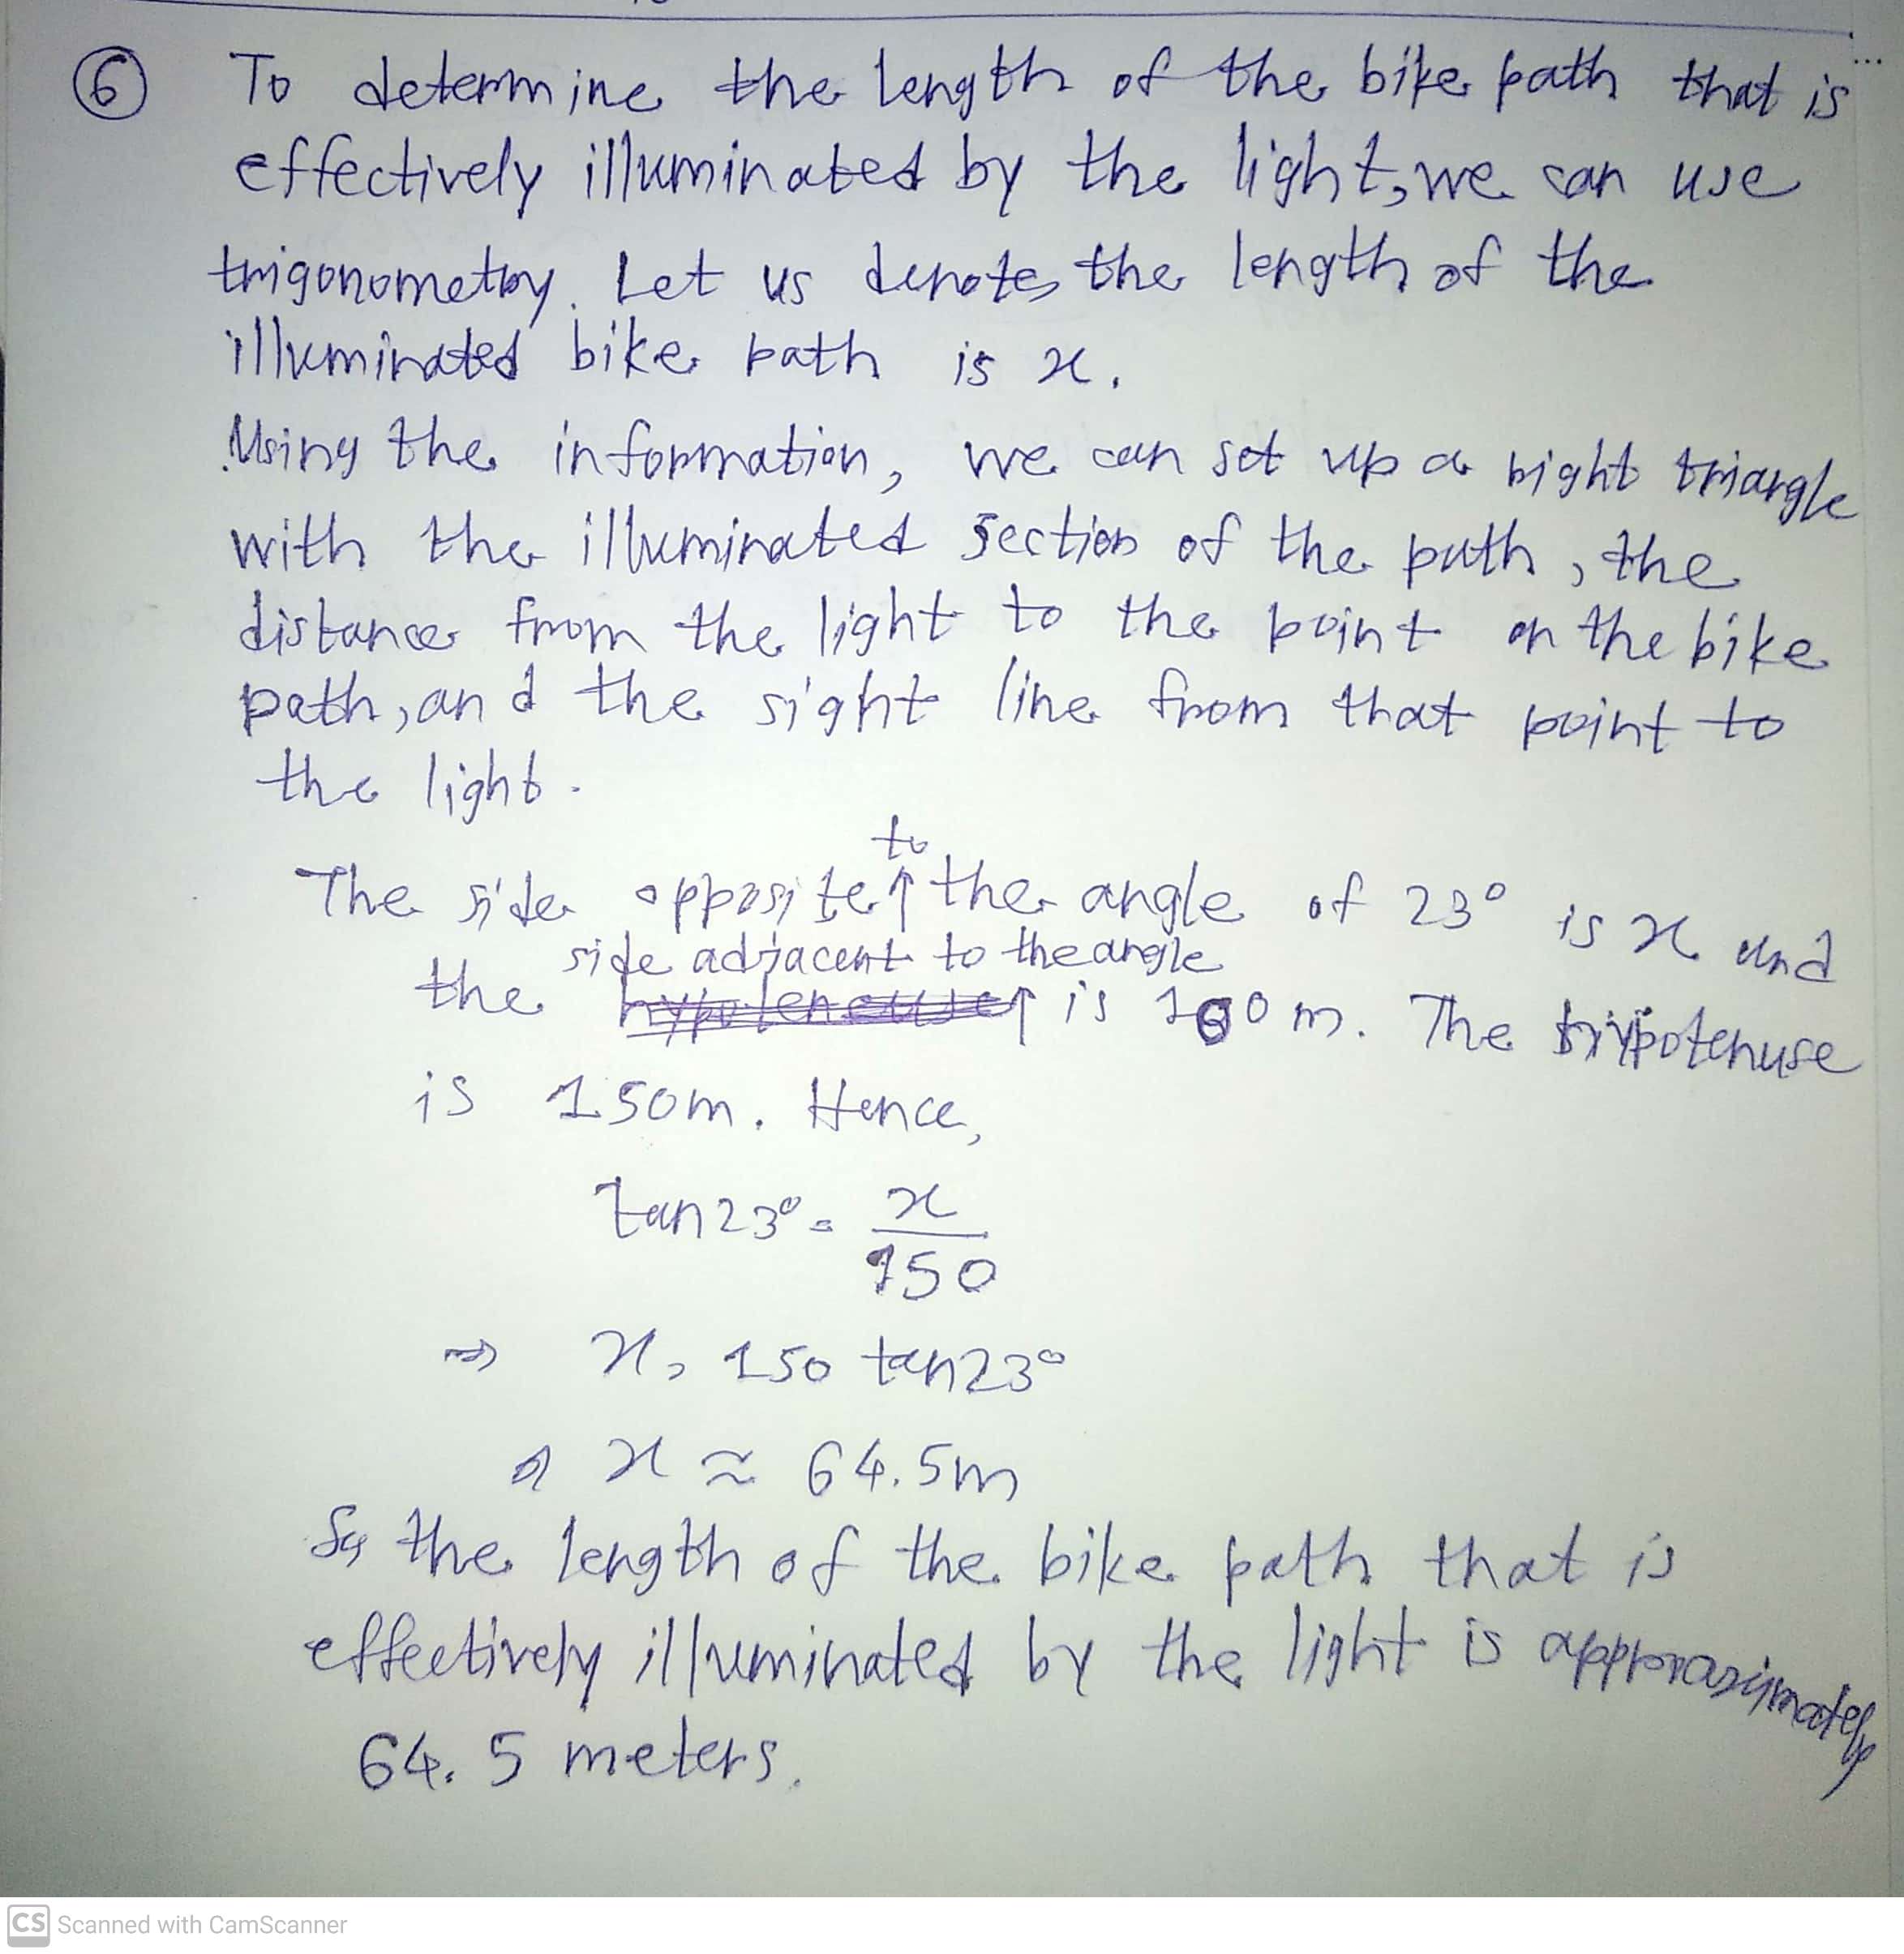 6 To determine the length of the bike path that is
effectively illuminated by the light, we can use
trigonometry. Let us denote the length of the
illuminated bike path is x.
Using the information, we can set up a right triangle
with the illuminated section of the path, the
distance from the light to the point on the bike
path, and the sight line from that point to
the light.
to
The side opposite the angle of 23° is x and
side adjacent to the angle
the hypotenuse is 100 m. The hypotenuse
is 150m. Hence,
tan 23° = x
150
⇒ x = 150 tan 23°
x ≈ 64.5m
So the length of the bike path that is
effectively illuminated by the light is approximately
64.5 meters.
CS Scanned with CamScanner